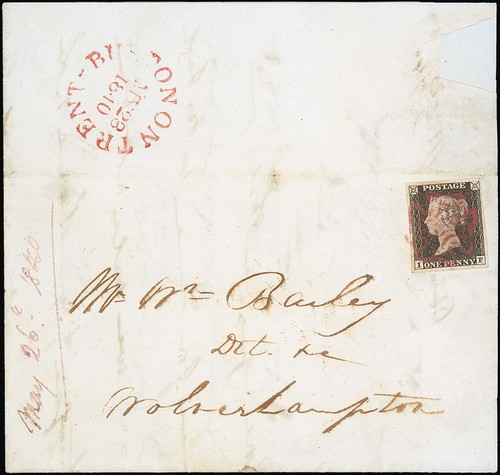 BURTON ON TRENT
MY 28
1840
POSTAGE
ONE PENNY
Mr Wm Bailey
Wolverhampton
May 26. 1840